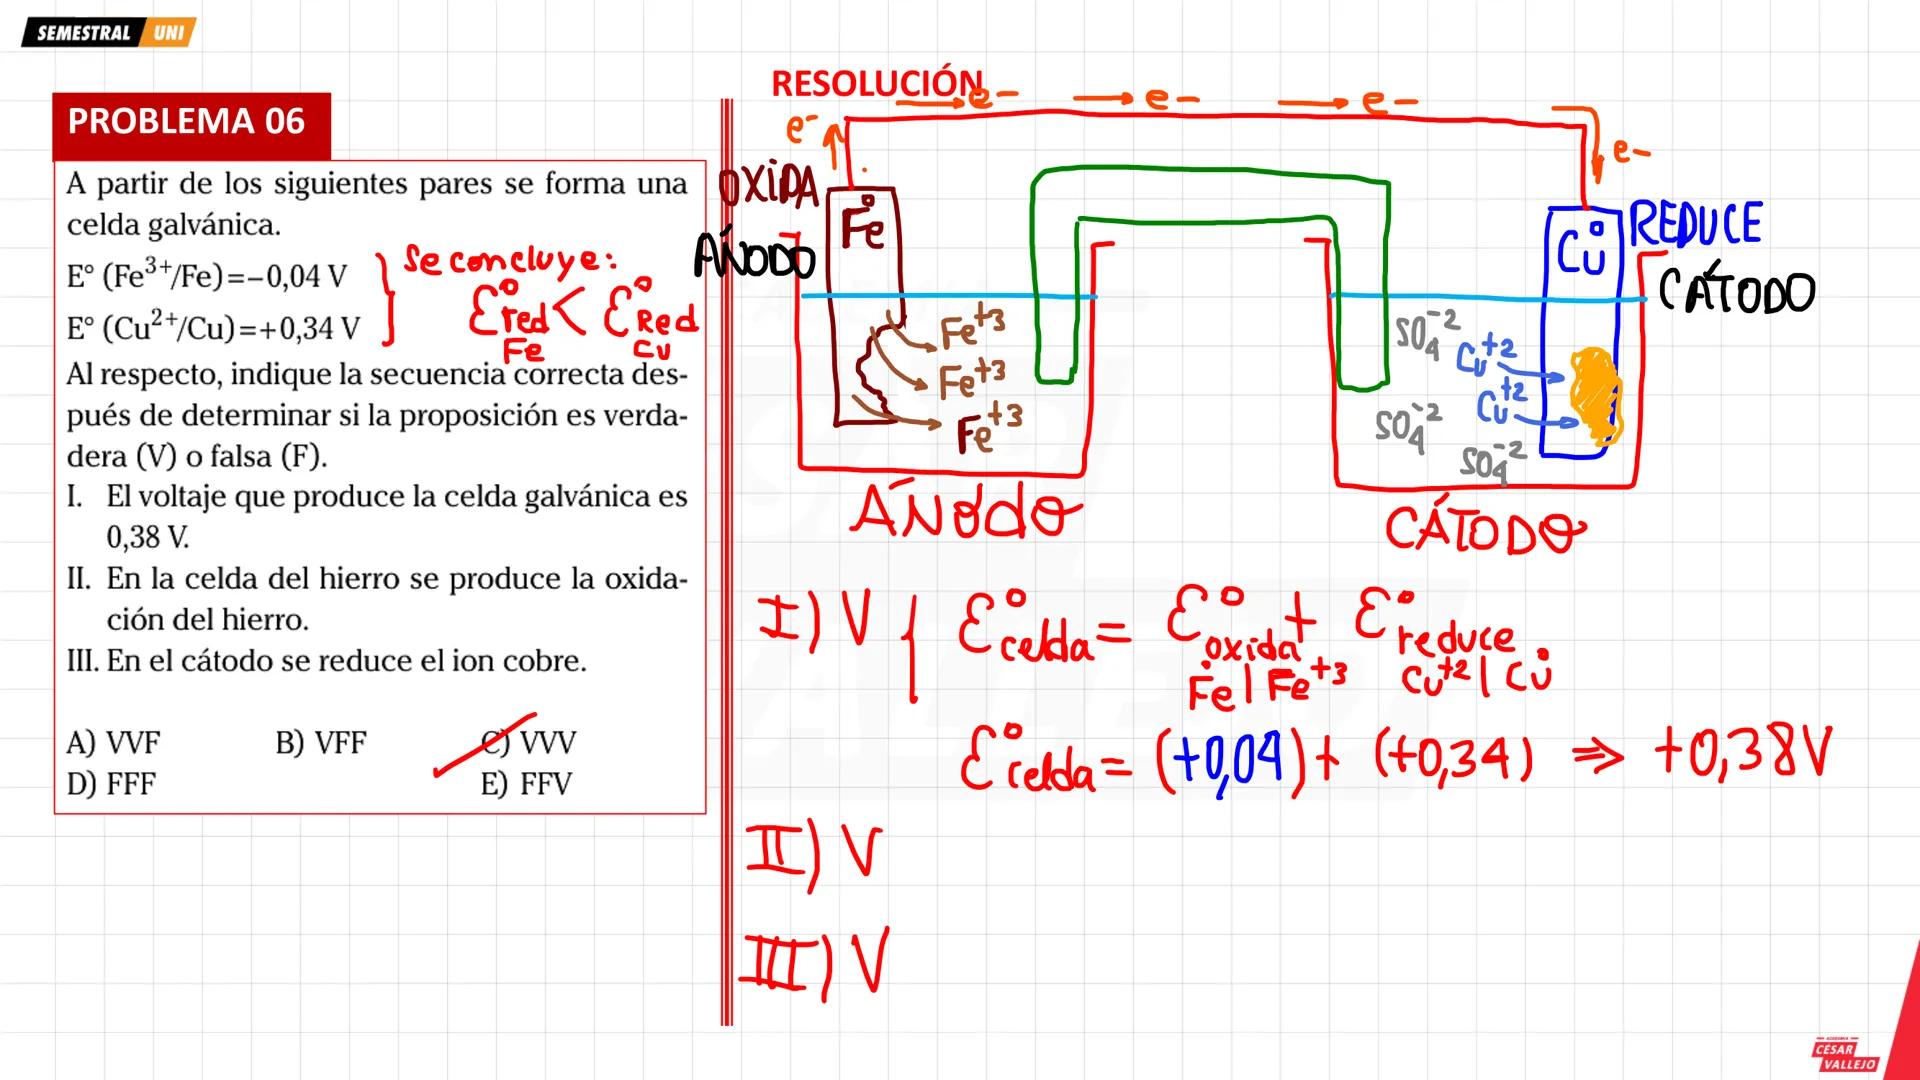 SEMESTRAL UNI
PROBLEMA 06
A partir de los siguientes pares se forma una
celda galvánica.
E° (Fe³⁺/Fe)=−0,04 V
E° (Cu²⁺/Cu)=+0,34 V
Se concluye:
Ɛ°red Fe < Ɛ°Red Cu
Al respecto, indique la secuencia correcta des-
pués de determinar si la proposición es verda-
dera (V) o falsa (F).
I. El voltaje que produce la celda galvánica es
0,38 V.
II. En la celda del hierro se produce la oxida-
ción del hierro.
III. En el cátodo se reduce el ion cobre.
A) VVF B) VFF C) VVV
D) FFF E) FFV
RESOLUCIÓN
e- e- e- e- e-
OXIDA
ÁNODO
Fe°
Fe+3
Fe+3
Fe+3
ÁNODO
REDUCE
CÁTODO
Cu°
SO4-2 Cu+2
SO4-2 Cu+2
SO4-2
CÁTODO
I) V { Ɛ°celda = Ɛ°oxida + Ɛ°reduce
Fe°|Fe+3 Cu+2|Cu°
Ɛ°celda = (+0,04) + (+0,34) ⇒ +0,38V
II) V
III) V
ACADEMIA
CÉSAR
VALLEJO